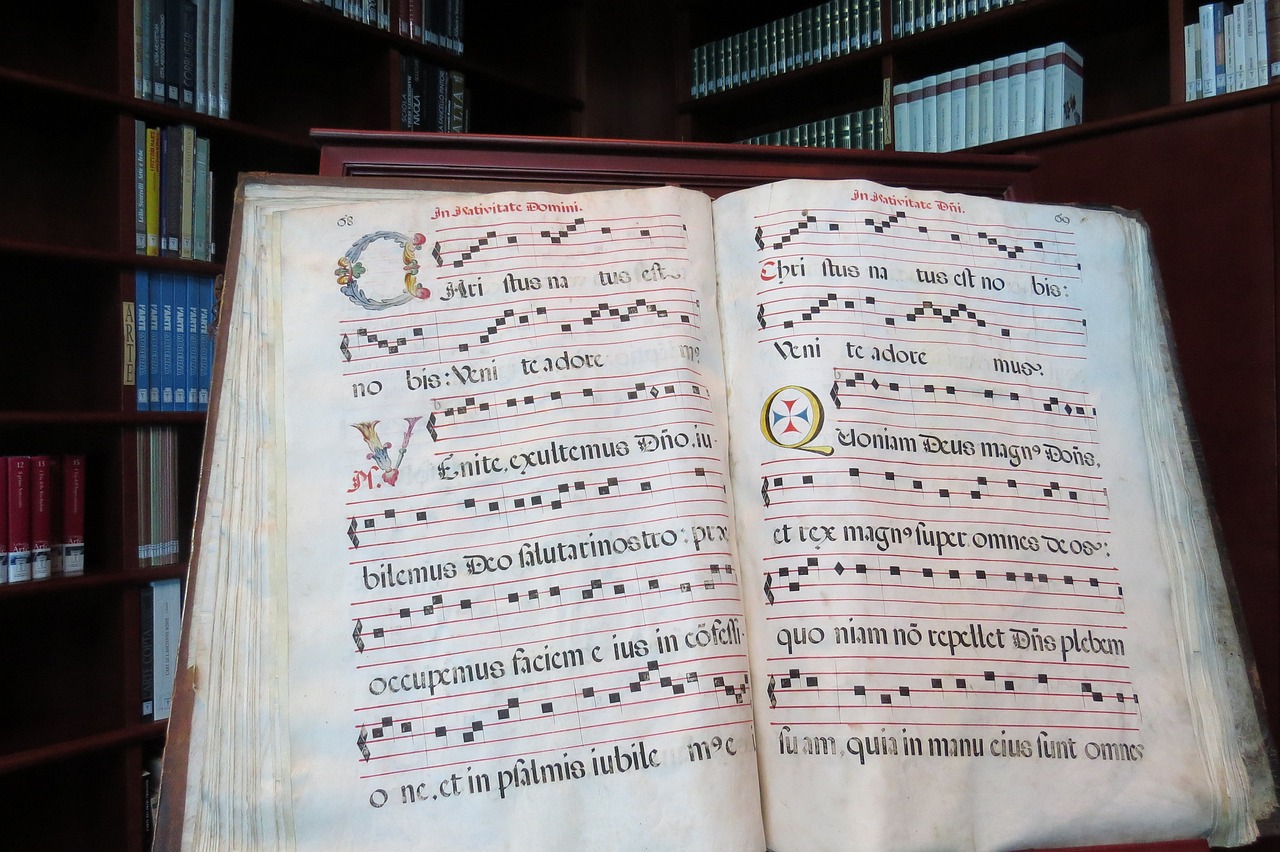 68
In Nativitate Domini.
CHri stus na tus est
no bis: Veni te adore m9
Ps. VEnite, exultemus Dño, iu-
bilemus Deo salutari nostro: præ
occupemus faciem e ius in cõfessi-
o ne, et in psalmis iubile m9 e
69
In Nativitate Dñi.
Chri stus na tus est no bis:
Veni te adore mus.
Quoniam Deus magn9 Doñs,
et rex magn9 super omnes deos:
quo niam nõ repellet Dñs plebem
su am, quia in manu eius sunt omnes
ARTE
L'ARTE
L'ARTE
L'ARTE
L'ARTE
L'ARTE
12
13